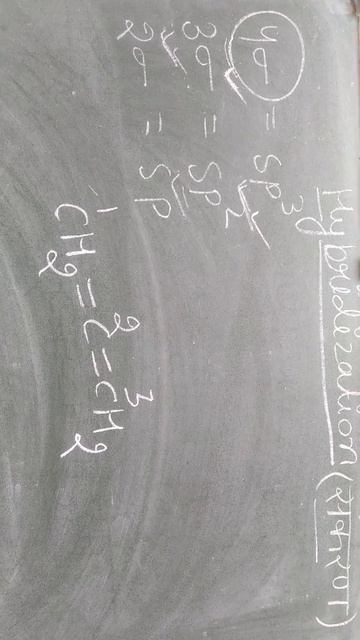 Hybridization (संकरण)
4σ = SP³
3σ = SP²
2σ = SP
¹CH₂ = ²C = ³CH₂